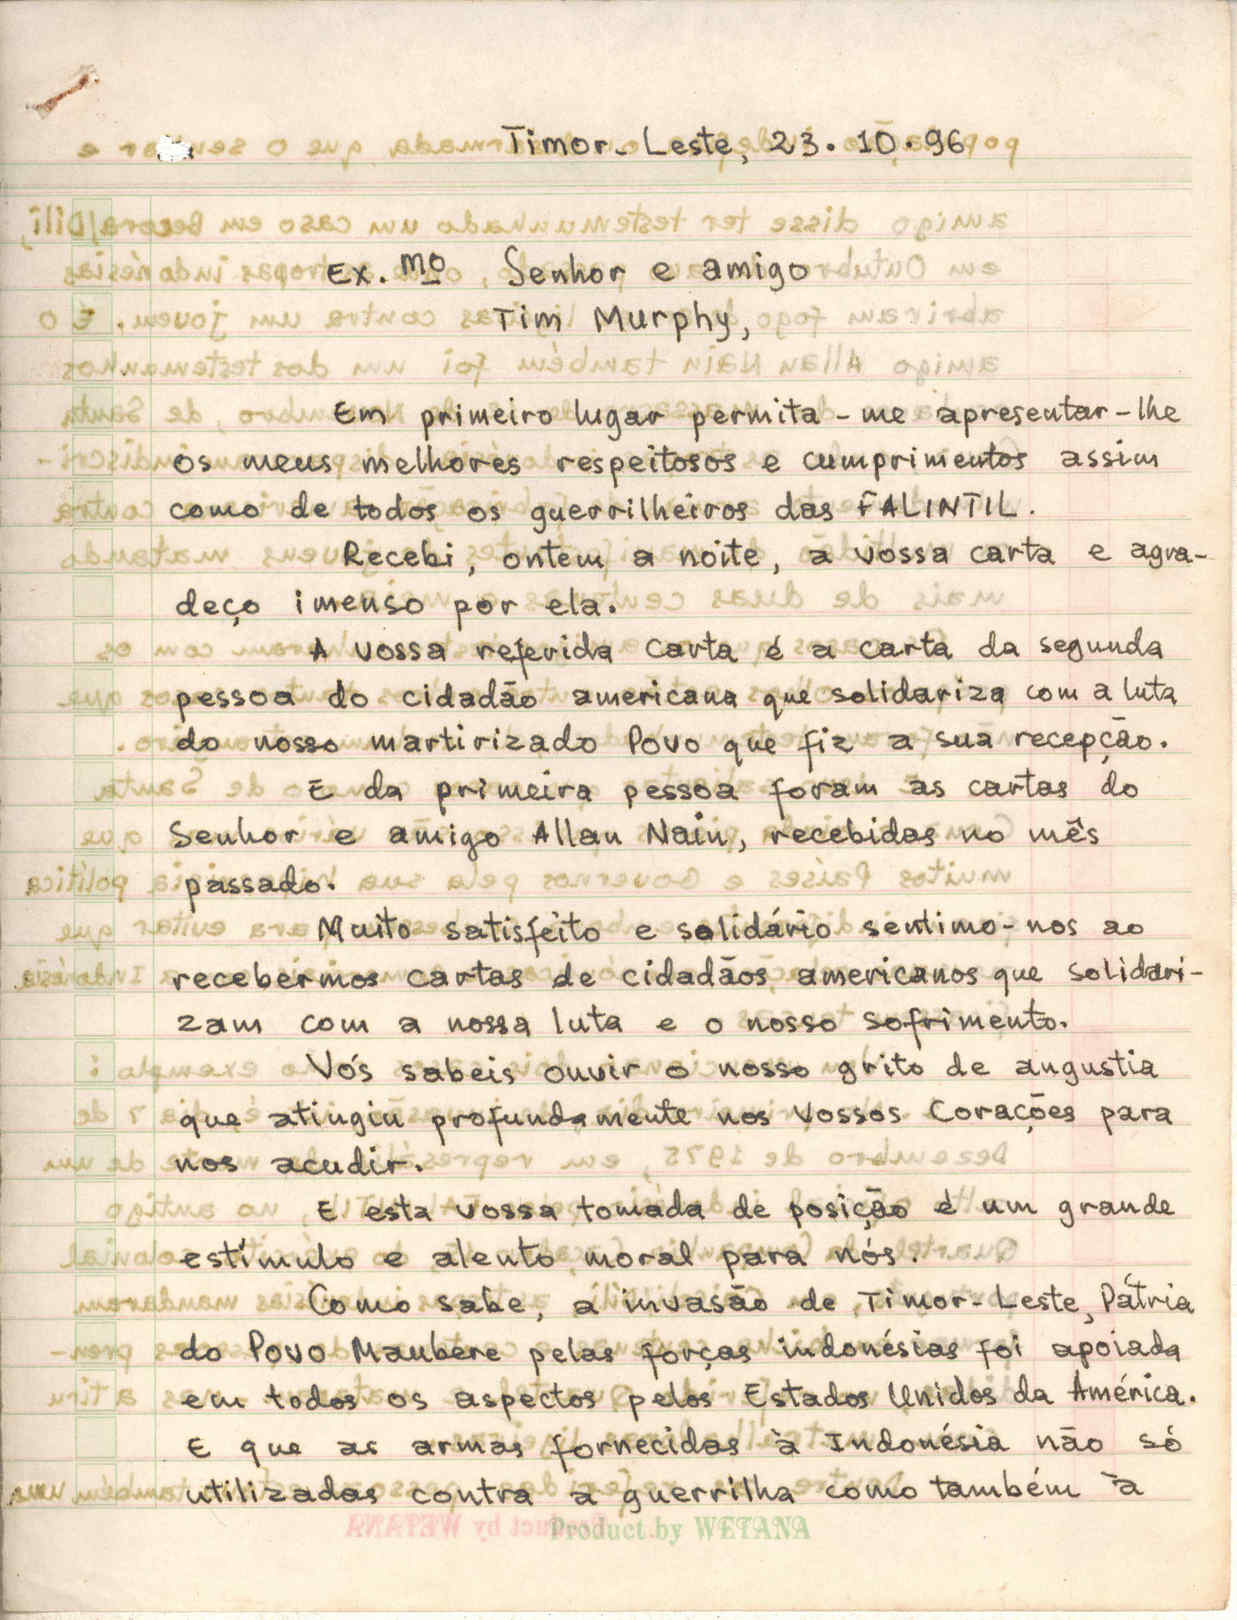 Timor-Leste, 23.10.96
Ex.mo Senhor e amigo
Tim Murphy,
Em primeiro lugar permita-me apresentar-lhe
os meus melhores respeitosos e cumprimentos assim
como de todos os guerrilheiros das FALINTIL.
Recebi, ontem a noite, a vossa carta e agra-
deço imenso por ela.
A vossa referida carta é a carta da segunda
pessoa do cidadão americana que solidariza com a luta
do nosso martirizado Povo que fiz a sua recepção.
E da primeira pessoa foram as cartas do
Senhor e amigo Allan Nain, recebidas no mês
passado.
Muito satisfeito e solidário sentimo-nos ao
recebermos cartas de cidadãos americanos que solidari-
zam com a nossa luta e o nosso sofrimento.
Vós sabeis ouvir o nosso grito de angustia
que atingiu profundamente nos vossos Corações para
nos acudir.
E esta vossa tomada de posição é um grande
estímulo e alento moral para nós.
Como sabe, a invasão de Timor-Leste, Pátria
do Povo Maubere pelas forças indonésias foi apoiada
em todos os aspectos pelos Estados Unidos da América.
E que as armas fornecidas à Indonésia não só
utilizadas contra a guerrilha como também à
Product by WETANA